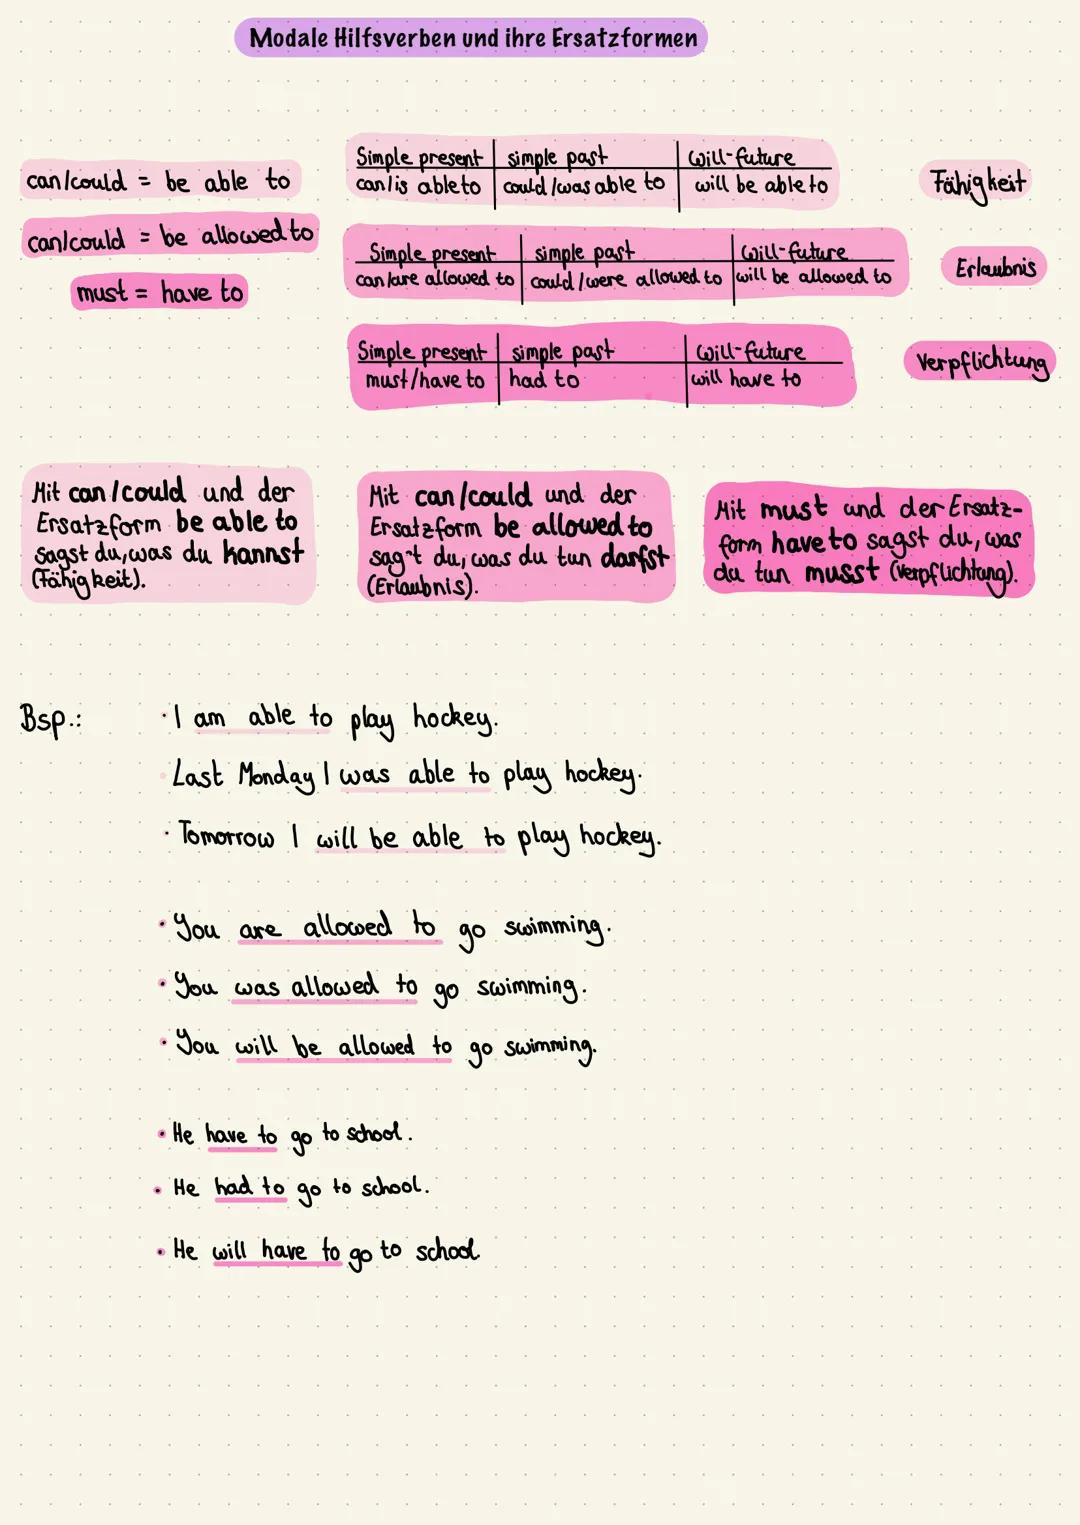 Modale Hilfsverben und ihre Ersatzformen
can/could = be able to
can/could = be allowed to
must = have to
Simple present simple past will-future
can/is able to could/was able to will be able to
Fähigkeit
Simple present simple past will-future
can/are allowed to could/were allowed to will be allowed to
Erlaubnis
Simple present simple past will-future
must/have to had to will have to
Verpflichtung
Mit can/could und der
Ersatzform be able to
sagst du, was du kannst
(Fähigkeit).
Mit can/could und der
Ersatzform be allowed to
sagt du, was du tun darfst
(Erlaubnis).
Mit must und der Ersatz-
form have to sagst du, was
du tun musst (Verpflichtung).
Bsp.:
· I am able to play hockey.
· Last Monday I was able to play hockey.
· Tomorrow I will be able to play hockey.
· You are allowed to go swimming.
· You was allowed to go swimming.
· You will be allowed to go swimming.
· He have to go to school.
· He had to go to school.
· He will have to go to school